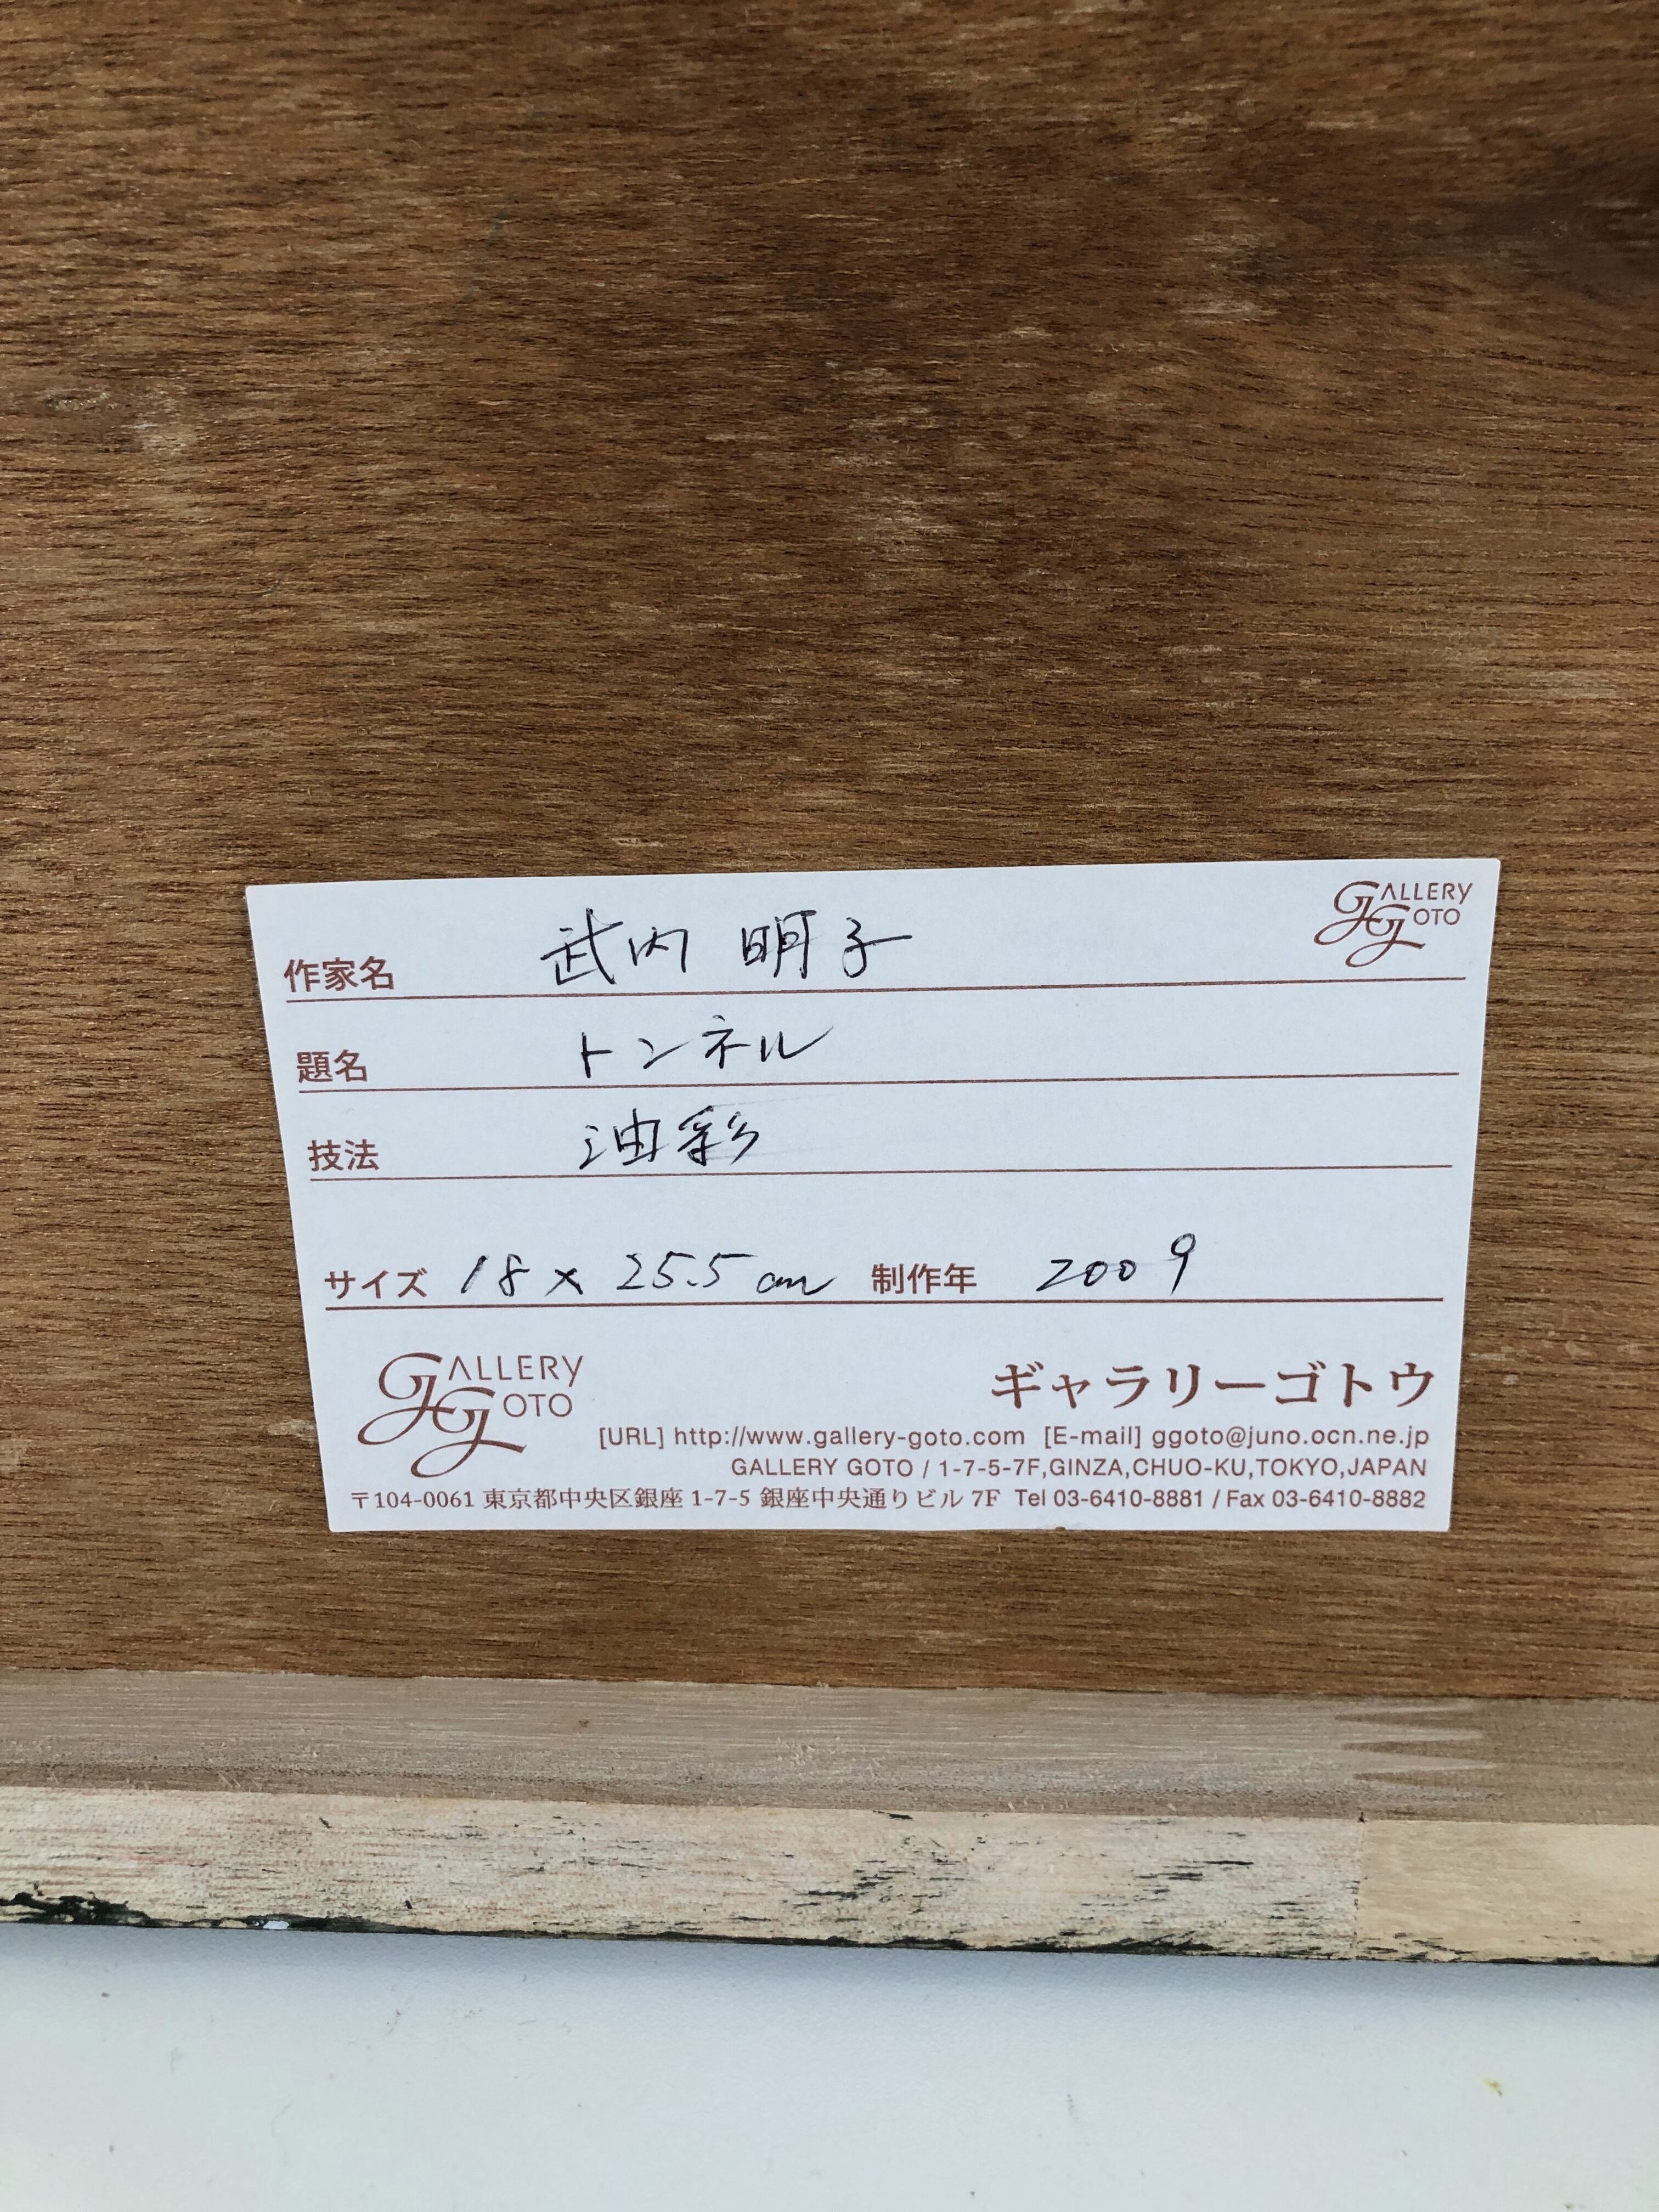 GALLERY
GOTO
作家名 武内 明子
題名 トンネル
技法 油彩
サイズ 18 x 25.5 cm 制作年 2009
GALLERY
GOTO
ギャラリーゴトウ
[URL] http://www.gallery-goto.com [E-mail] ggoto@juno.ocn.ne.jp
GALLERY GOTO / 1-7-5-7F,GINZA,CHUO-KU,TOKYO,JAPAN
〒104-0061 東京都中央区銀座 1-7-5 銀座中央通りビル 7F Tel 03-6410-8881 / Fax 03-6410-8882